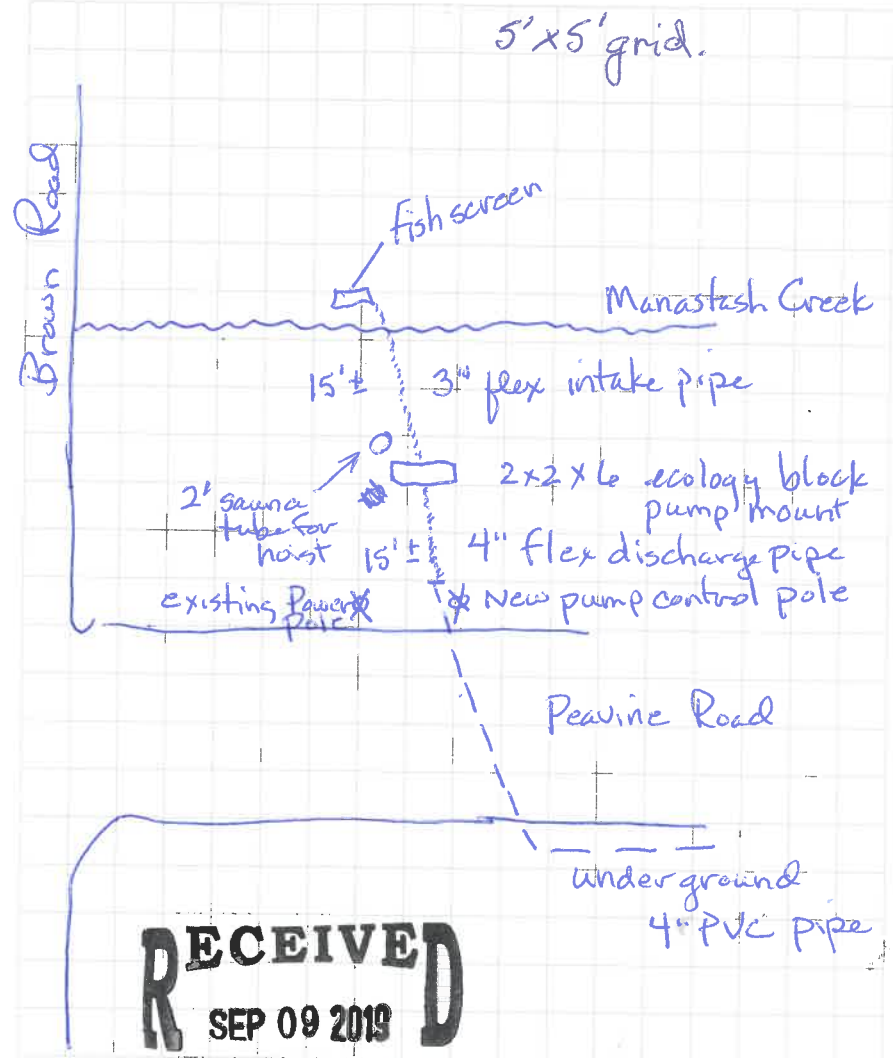 5'x5' grid.
Brown Road
fish screen
Manastash Creek
15'±
3" flex intake pipe
2' sauna
tube for
hoist
2x2x6 ecology block
pump mount
15'±
4" flex discharge pipe
existing Power
Pole
New pump control pole
Peavine Road
underground
4" PVC pipe
RECEIVED
SEP 09 2019